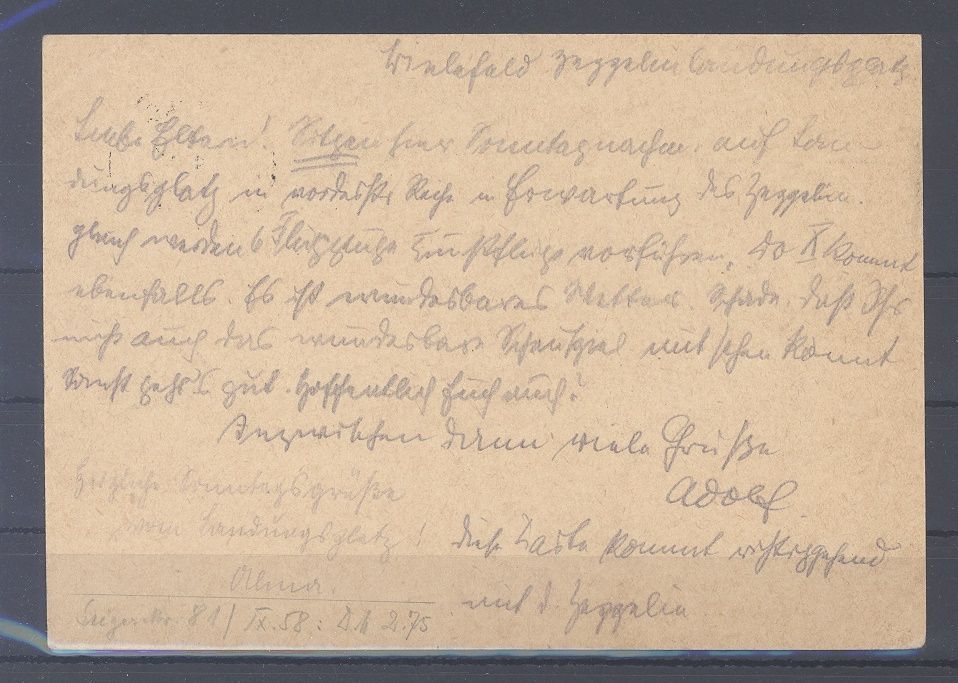 Bielefeld Zeppelinlandungsplatz
Liebe Eltern! Sitzen hier Sonntagnachm. auf Lan-
dungsplatz in vorderster Reihe in Erwartung des Zeppelin.
Gleich werden 6 Flugzeuge Kunstflüge vorführen, Do X kommt
ebenfalls. Es ist wunderbares Wetter. Schade, daß Ihr
nicht auch das wunderbare Schauspiel mit sehen könnt
Sonst geht's gut. Hoffentlich Euch auch!
Inzwischen dann viele Grüße
Adolf.
Herzliche Sonntagsgrüße
vom Landungsplatz!
Alma.
Diese Karte kommt richtiggehend
mit d. Zeppelin
81 / IX. 58: 2.75